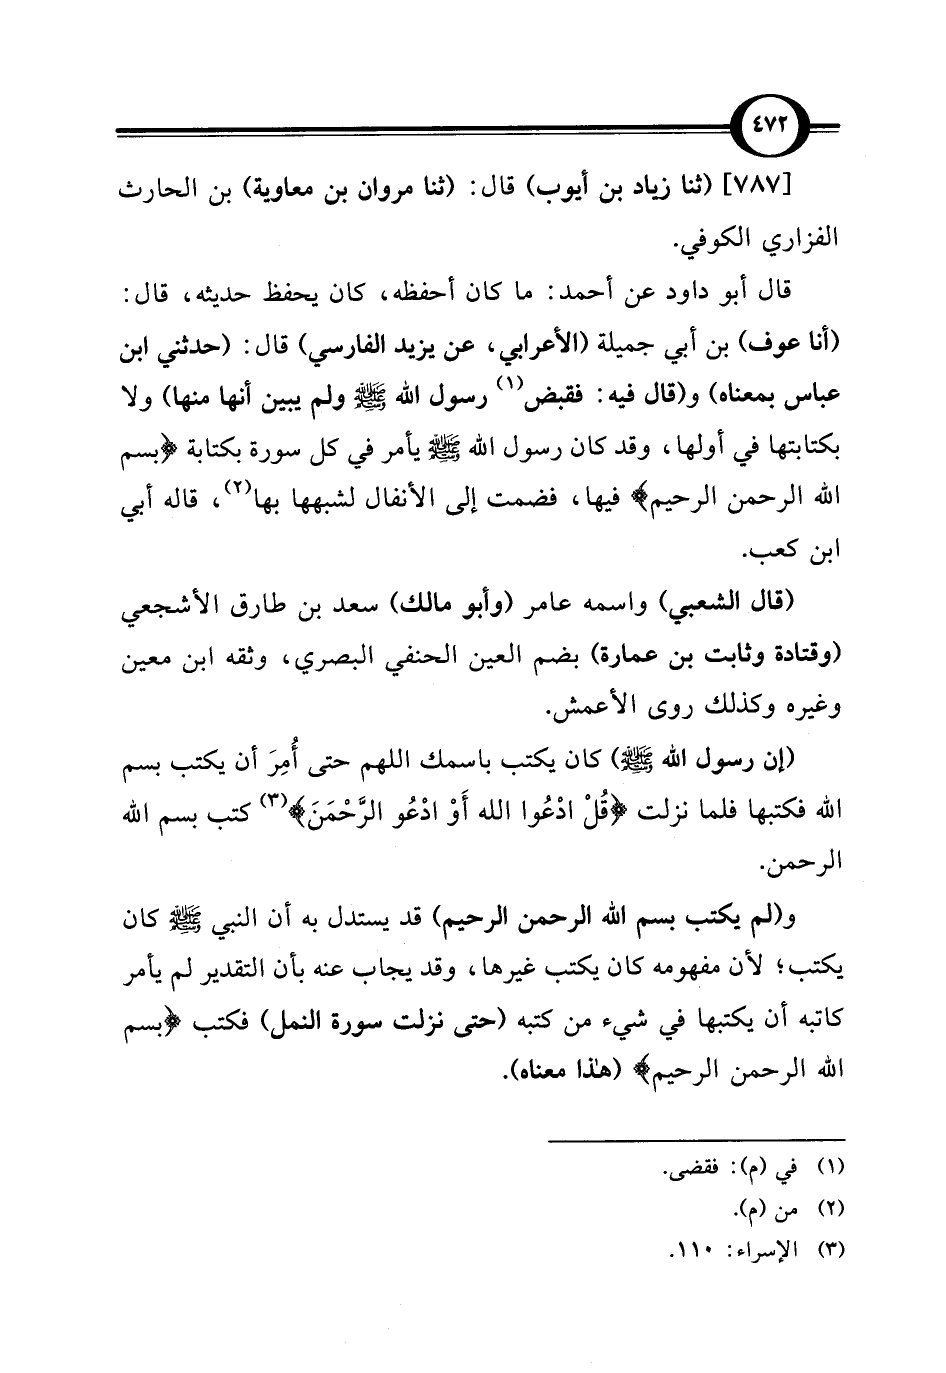 ٤٧٢
[٧٨٧] (ثنا زياد بن أيوب) قال: (ثنا مروان بن معاوية) بن الحارث
الفزاري الكوفي.
قال أبو داود عن أحمد: ما كان أحفظه، كان يحفظ حديثه، قال:
(أنا عوف) بن أبي جميلة (الأعرابي، عن يزيد الفارسي) قال: (حدثني ابن
عباس بمعناه) و(قال فيه: فقبض(١) رسول الله ﷺ ولم يبين أنها منها) ولا
بكتابتها في أولها، وقد كان رسول الله ﷺ يأمر في كل سورة بكتابة ﴿بسم
الله الرحمن الرحيم﴾ فيها، فضمت إلى الأنفال لشبهها بها(٢)، قاله أبي
ابن كعب.
(قال الشعبي) واسمه عامر (وأبو مالك) سعد بن طارق الأشجعي
(وقتادة وثابت بن عمارة) بضم العين الحنفي البصري، وثقه ابن معين
وغيره وكذلك روى الأعمش.
(إن رسول الله ﷺ) كان يكتب باسمك اللهم حتى أُمِرَ أن يكتب بسم
الله فكتبها فلما نزلت ﴿قُلْ ادْعُوا الله أَوْ ادْعُو الرَّحْمَنَ﴾(٣) كتب بسم الله
الرحمن.
و(لم يكتب بسم الله الرحمن الرحيم) قد يستدل به أن النبي ﷺ كان
يكتب؛ لأن مفهومه كان يكتب غيرها، وقد يجاب عنه بأن التقدير لم يأمر
كاتبه أن يكتبها في شيء من كتبه (حتى نزلت سورة النمل) فكتب ﴿بسم
الله الرحمن الرحيم﴾ (هذا معناه).
(١) في (م): فقضى.
(٢) من (م).
(٣) الإسراء: ١١٠.